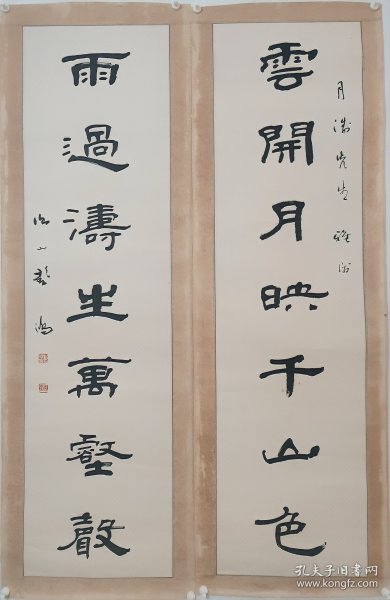 雲開月映千山色
月濤先生 雅屬
雨過濤生萬壑聲
孔夫子旧书网
www.kongfz.com